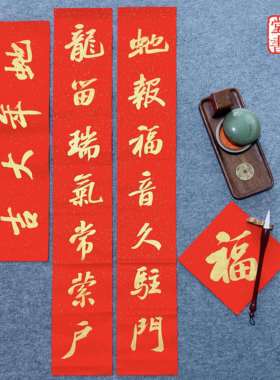 虵報福音久駐門
龍留瑞氣常縈户
虵年大吉
福